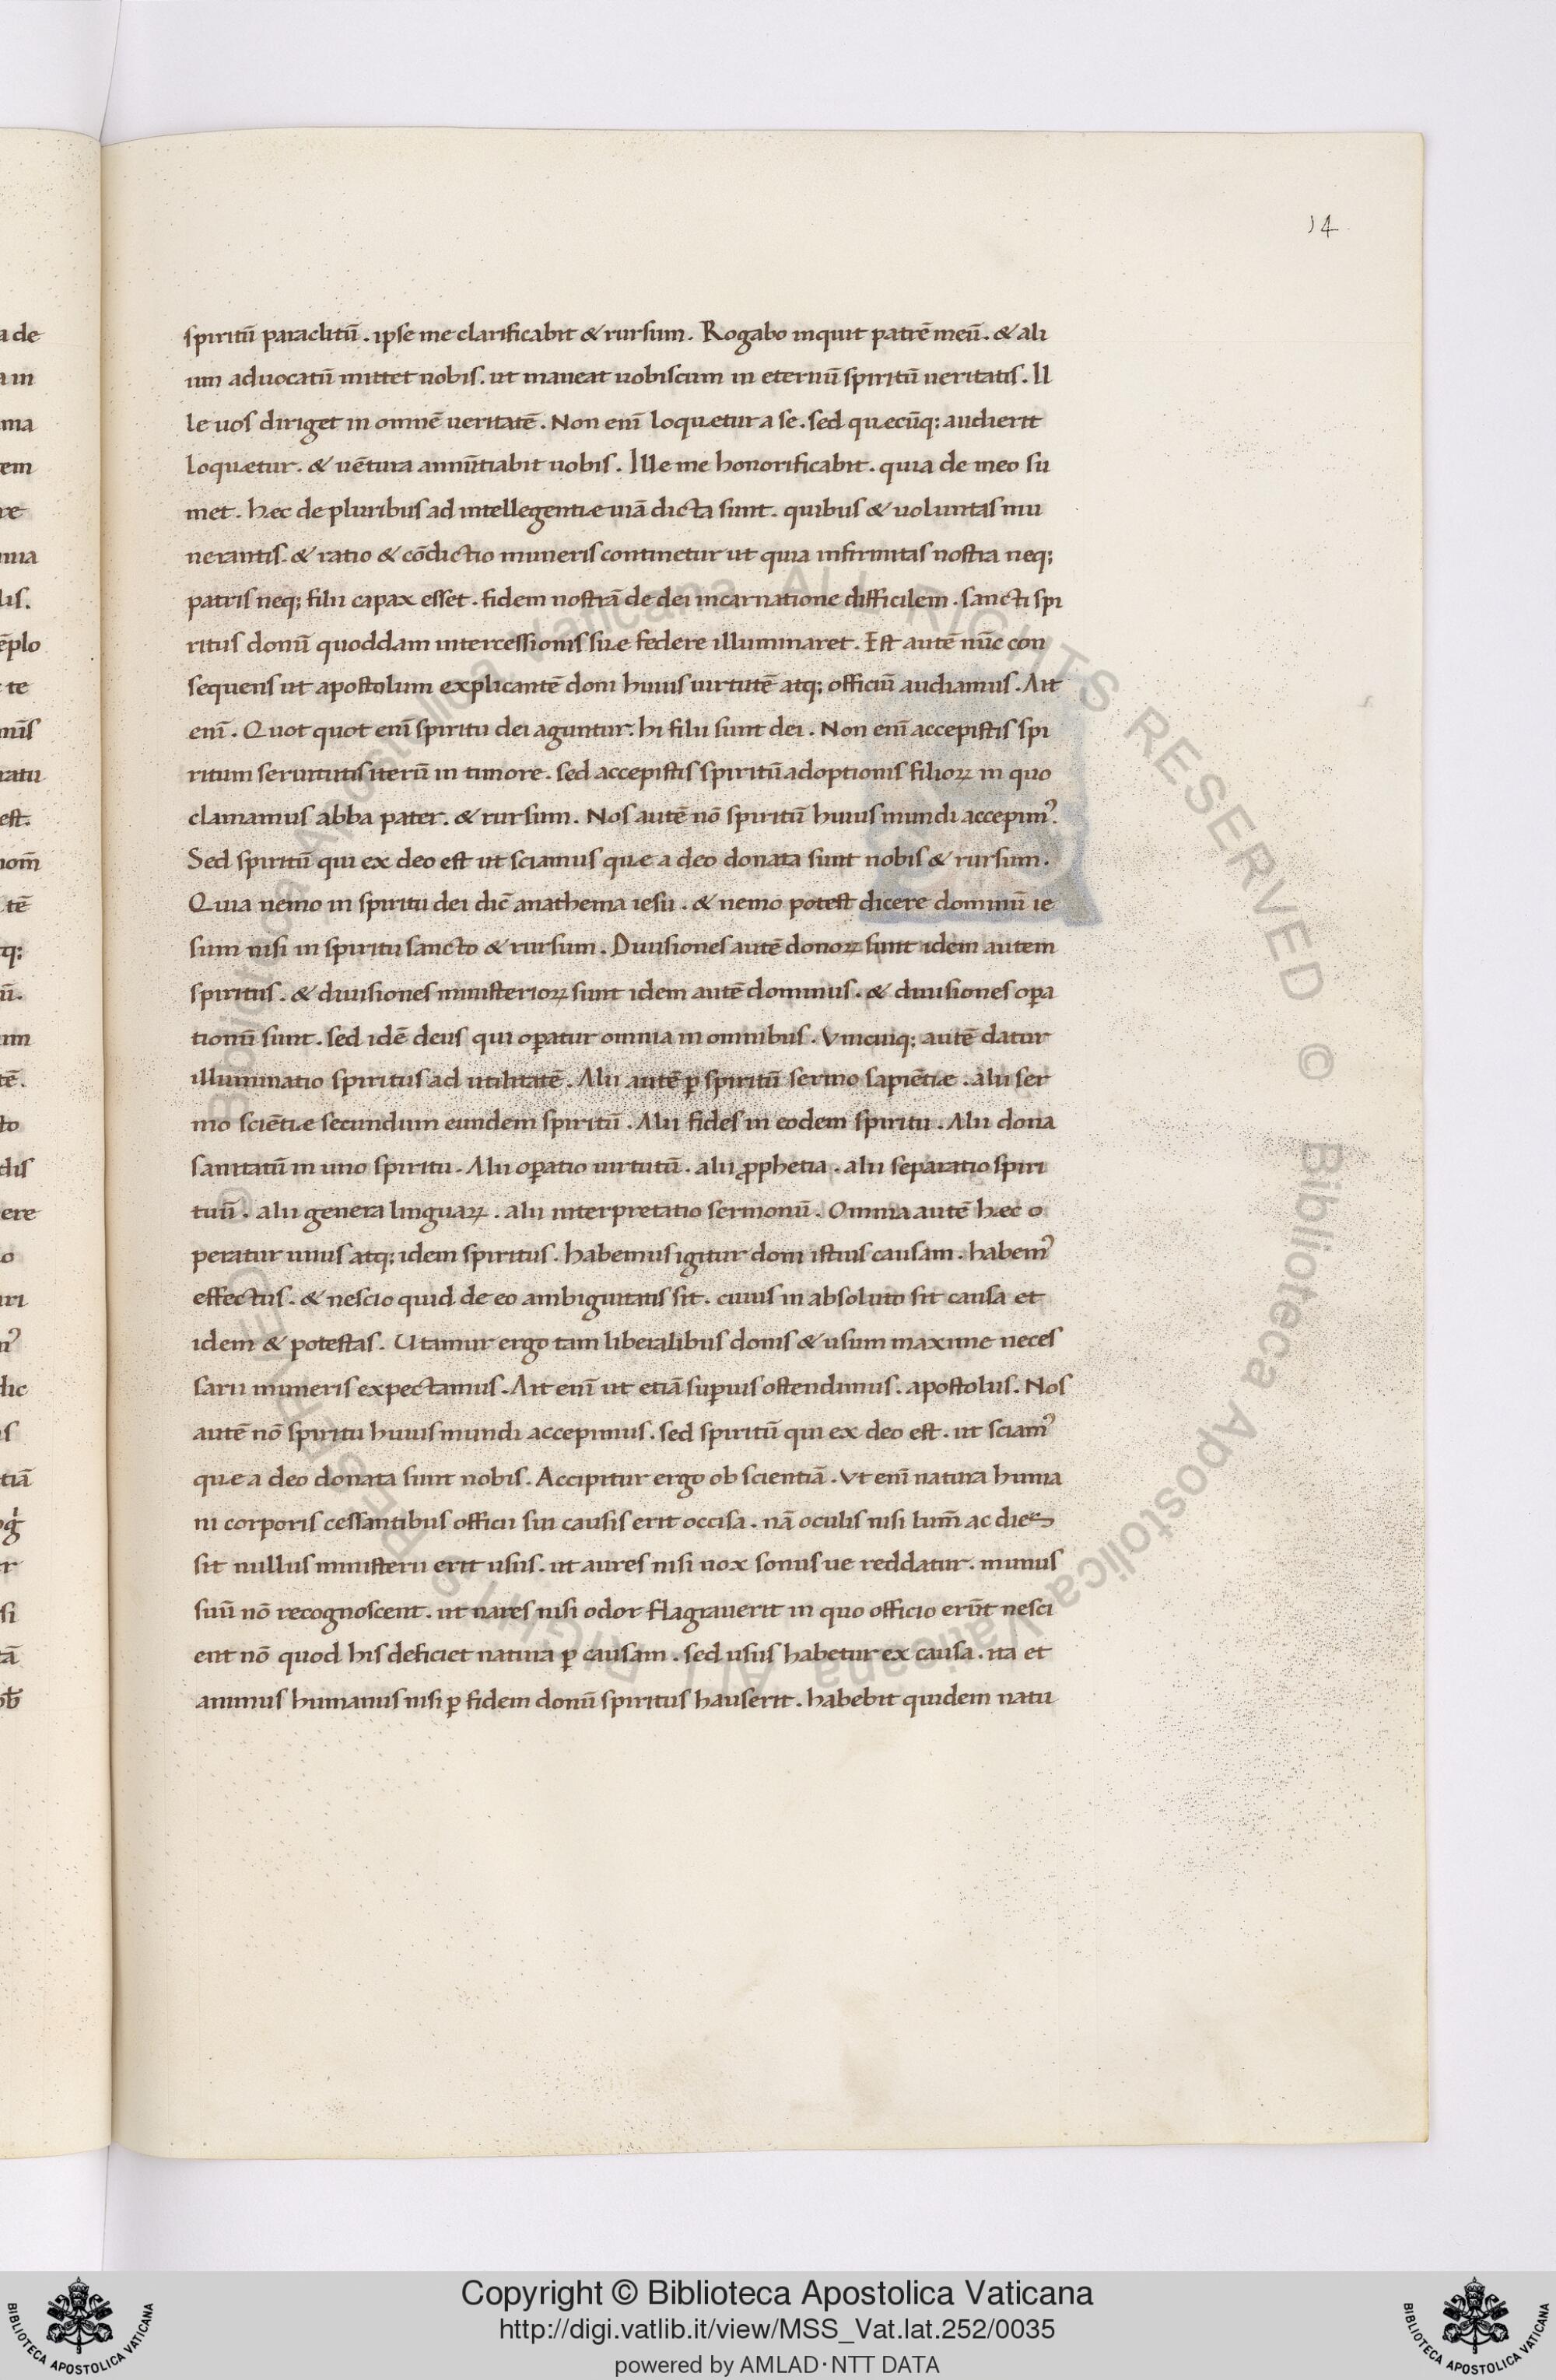 14
spiritū paraclitū . ipse me clarificabit & rursum . Rogabo inquit patrē meū . & ali
um aduocatū mittet uobis . ut maneat uobiscum in eternū spiritū ueritatis . Il
le uos diriget in omnē ueritatē . Non enī loquetur a se . sed quecūq; audierit
loquetur . & uētura annūtiabit uobis . Ille me honorificabit . quia de meo su
met . hec de pluribus ad intellegentie uiā dicta sunt . quibus & uoluntas mu
nerantis . & ratio & cōdictio muneris continetur ut quia infirmitas nostra neq;
patris neq; filii capax esset . fidem nostrā de dei incarnatione difficilem . sancti spi
ritus donū quoddam intercessionis sue federe illuminaret . Est autē nūc con
sequens ut apostolum explicantē doni huius uirtutē atq; officiū audiamus . Ait
enī . Quot quot enī spiritu dei aguntur . hi filii sunt dei . Non enī accepistis spi
ritum seruitutis iterū in timore . sed accepistis spiritū adoptionis filioꝝ in quo
clamamus abba pater . & rursum . Nos autē nō spiritū huius mundi accepimꝰ .
Sed spiritū qui ex deo est ut sciamus que a deo donata sunt nobis & rursum .
Quia nemo in spiritu dei dic̄ anathema iesu . & nemo potest dicere dominū ie
sum nisi in spiritu sancto & rursum . Diuisiones autē donoꝝ sunt idem autem
spiritus . & diuisiones ministerioꝝ sunt idem autē dominus . & diuisiones oꝑa
tionū sunt . sed idē deus qui oꝑatur omnia in omnibus . Vnicuiq; autē datur
illuminatio spiritus ad utilitatē . Alii autē ꝑ spiritū sermo sapiētie . alii ser
mo sciētie secundum eundem spiritū . Alii fides in eodem spiritu . Alii dona
sanitatū in uno spiritu . Alii oꝑatio uirtutū . alii ꝓphetia . alii separatio spiri
tuū . alii genera linguaꝝ . alii interpretatio sermonū . Omnia autē hec o
peratur unus atq; idem spiritus . habemus igitur doni istius causam . habemꝰ
effectus . & nescio quid de eo ambiguitatis sit . cuius in absoluto sit causa et
idem & potestas . Utamur ergo tam liberalibus donis & usum maxime neces
sarii muneris expectamus . Ait enī ut etiā suꝑius ostendimus . apostolus . Nos
autē nō spiritu huius mundi accepimus . sed spiritū qui ex deo est . ut sciamꝰ
que a deo donata sunt nobis . Accipitur ergo ob scientiā . Vt enī natura huma
ni corporis cessantibus officii sui causis erit occisa . nā oculis nisi lum̄ ac dies
sit nullus ministerii erit usus . ut aures nisi uox sonus ue reddatur . munus
suū nō recognoscent . ut nares nisi odor flagrauerit in quo officio erūt nesci
ent nō quod his deficiet natura ꝑ causam . sed usus habetur ex causa . ita et
animus humanus nisi ꝑ fidem donū spiritus hauserit . habebit quidem natu
Copyright © Biblioteca Apostolica Vaticana
http://digi.vatlib.it/view/MSS_Vat.lat.252/0035
powered by AMLAD·NTT DATA